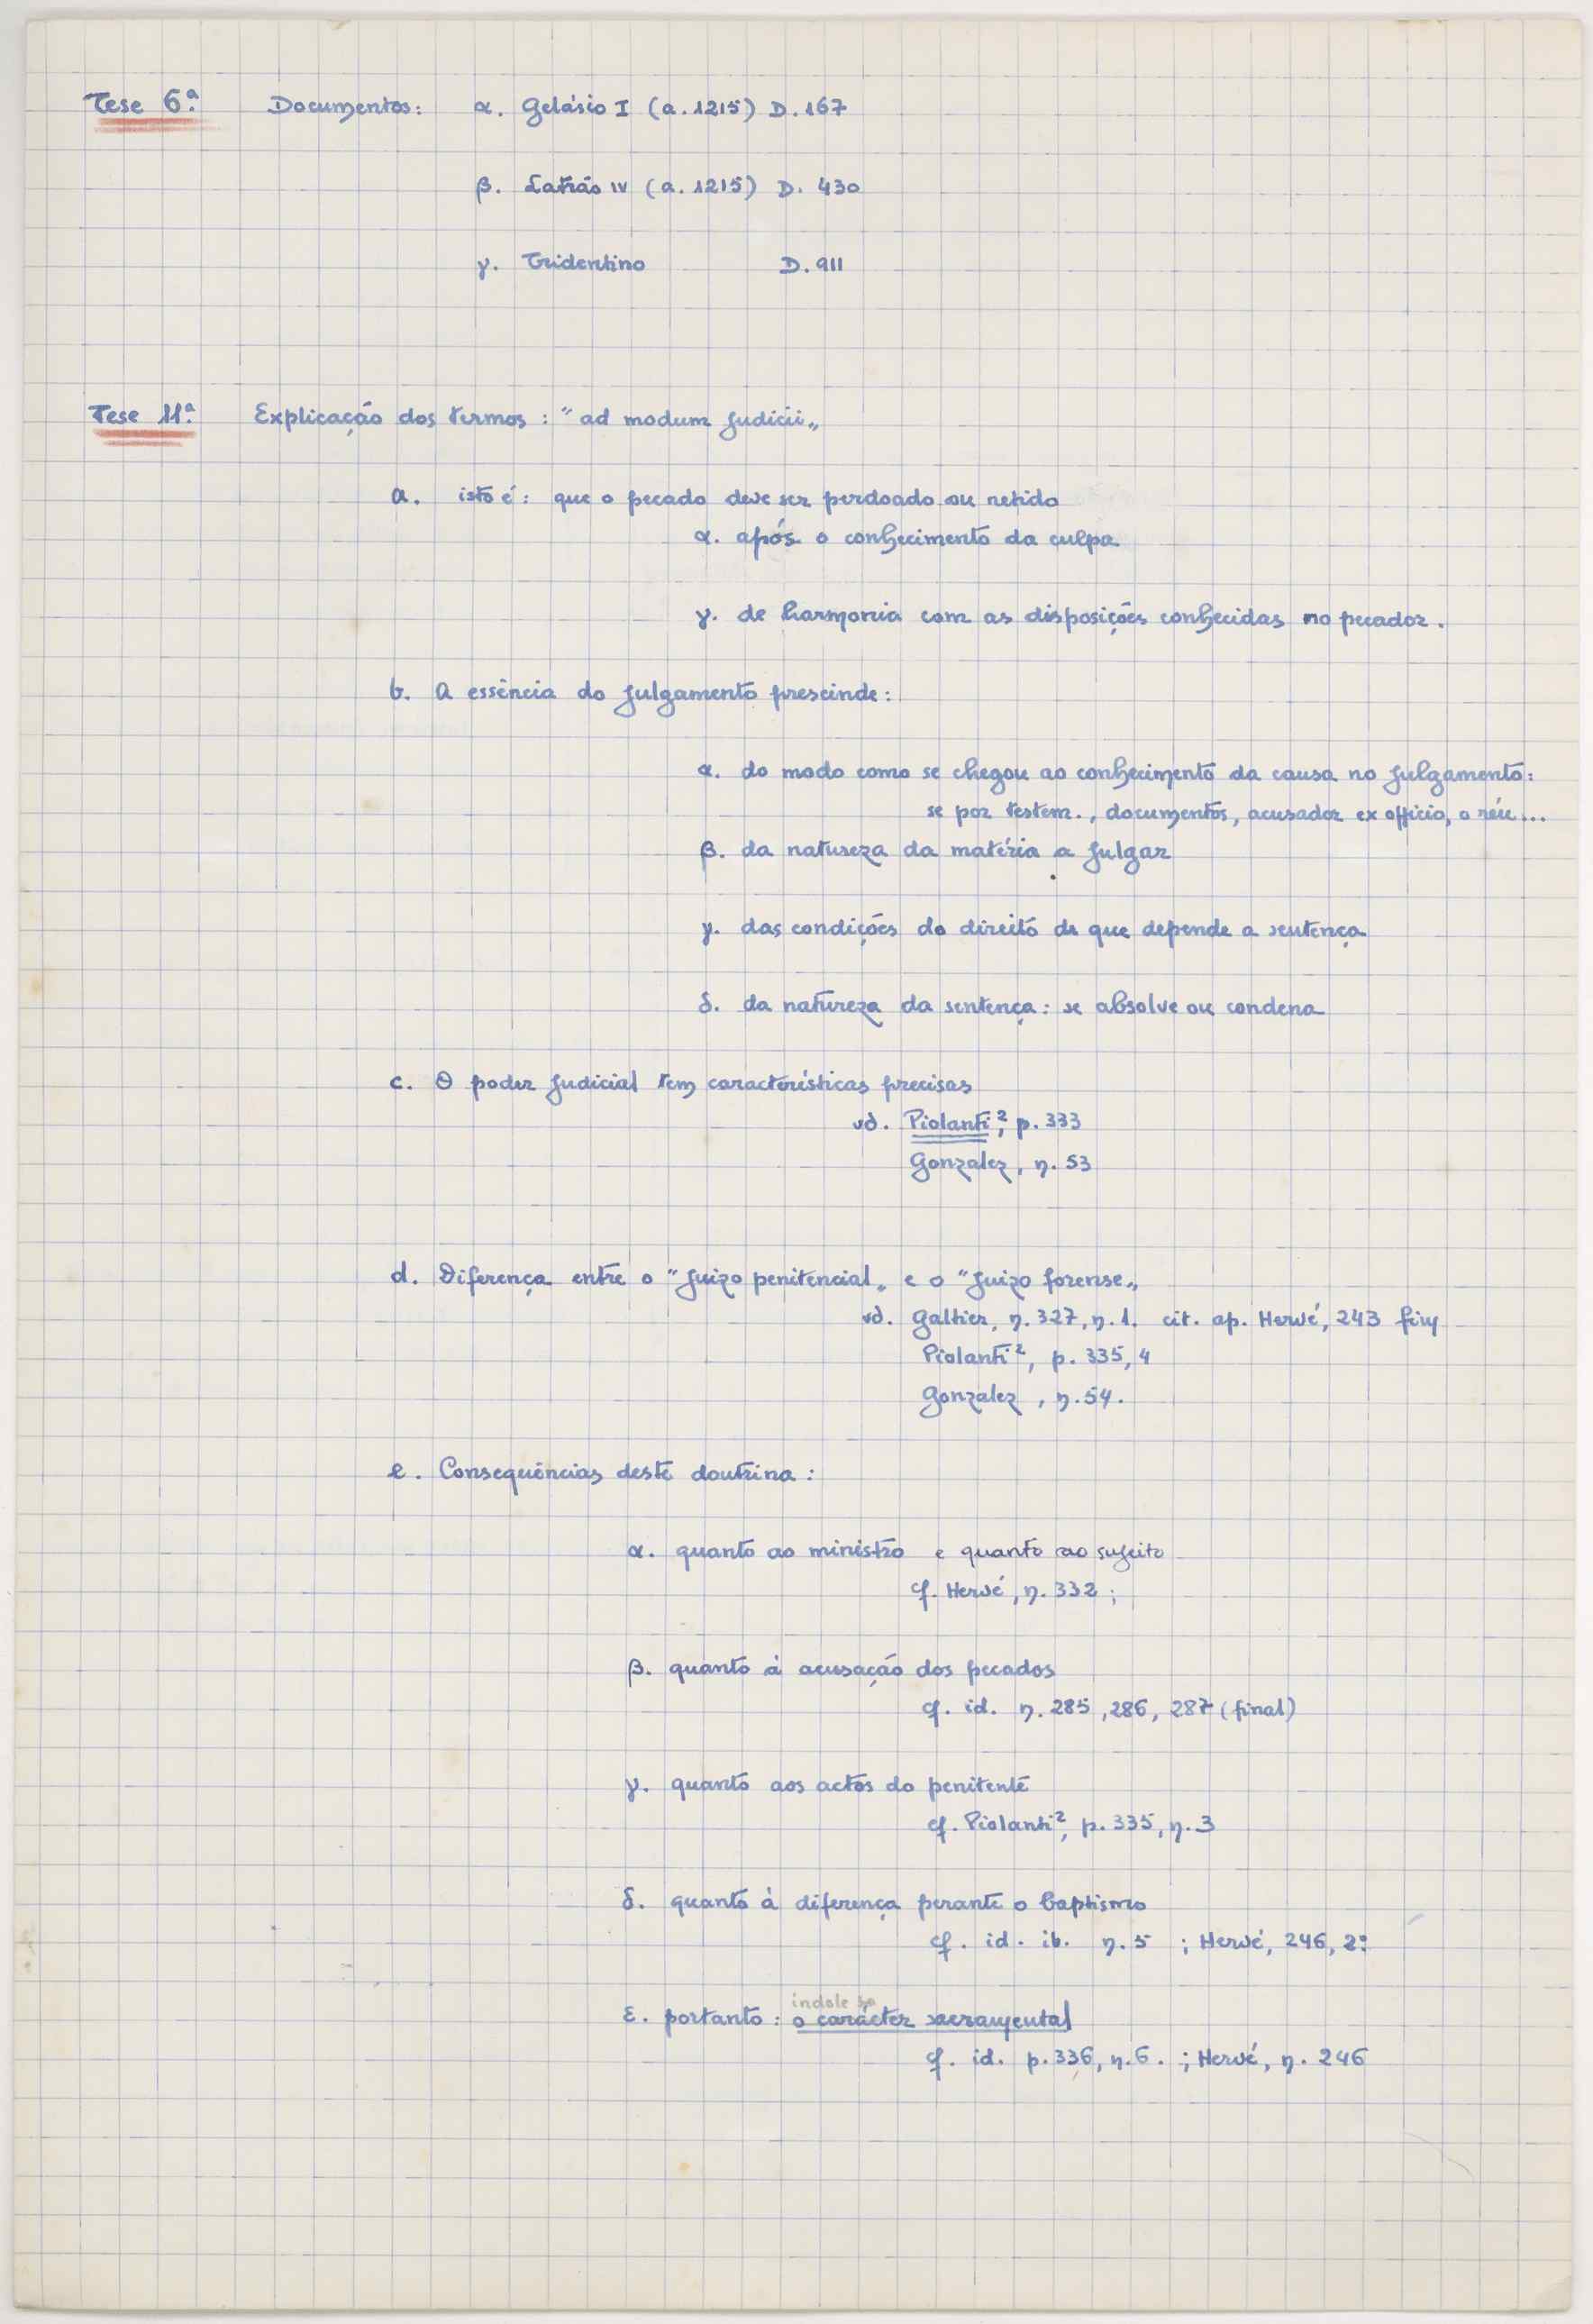 Tese 6ª. Documentos: α. Gelásio I (a. 1215) D. 167
β. Latrão IV (a. 1215) D. 430
γ. Tridentino D. 911
Tese 11ª. Explicação dos termos : "ad modum judicii„
a. isto é: que o pecado deve ser perdoado ou retido
α. após o conhecimento da culpa
γ. de harmonia com as disposições conhecidas no pecador.
b. A essência do julgamento prescinde:
α. do modo como se chegou ao conhecimento da causa no julgamento:
se por testem., documentos, acusador ex officio, o réu...
β. da natureza da matéria a julgar
γ. das condições do direito de que depende a sentença
δ. da natureza da sentença: se absolve ou condena
c. O poder judicial tem características precisas
vd. Piolanti², p. 333
Gonzalez, n. 53
d. Diferença entre o "juizo penitencial„ e o "juizo forense„
vd. Galtier, n. 327, n. 1. cit. ap. Hervé, 243 fin
Piolanti², p. 335, 4
Gonzalez, n. 54.
e. Consequências deste doutrina :
α. quanto ao ministro e quanto ao sujeito
cf. Hervé, n. 332 ;
β. quanto à acusação dos pecados
cf. id. n. 285, 286, 287 (final)
γ. quanto aos actos do penitente
cf. Piolanti², p. 335, n. 3
δ. quanto à diferença perante o baptismo
cf. id. ib. n. 5 ; Hervé, 246, 2º
indole
ε. portanto : o carácter sacramental
cf. id. p. 336, n. 6. ; Hervé, n. 246